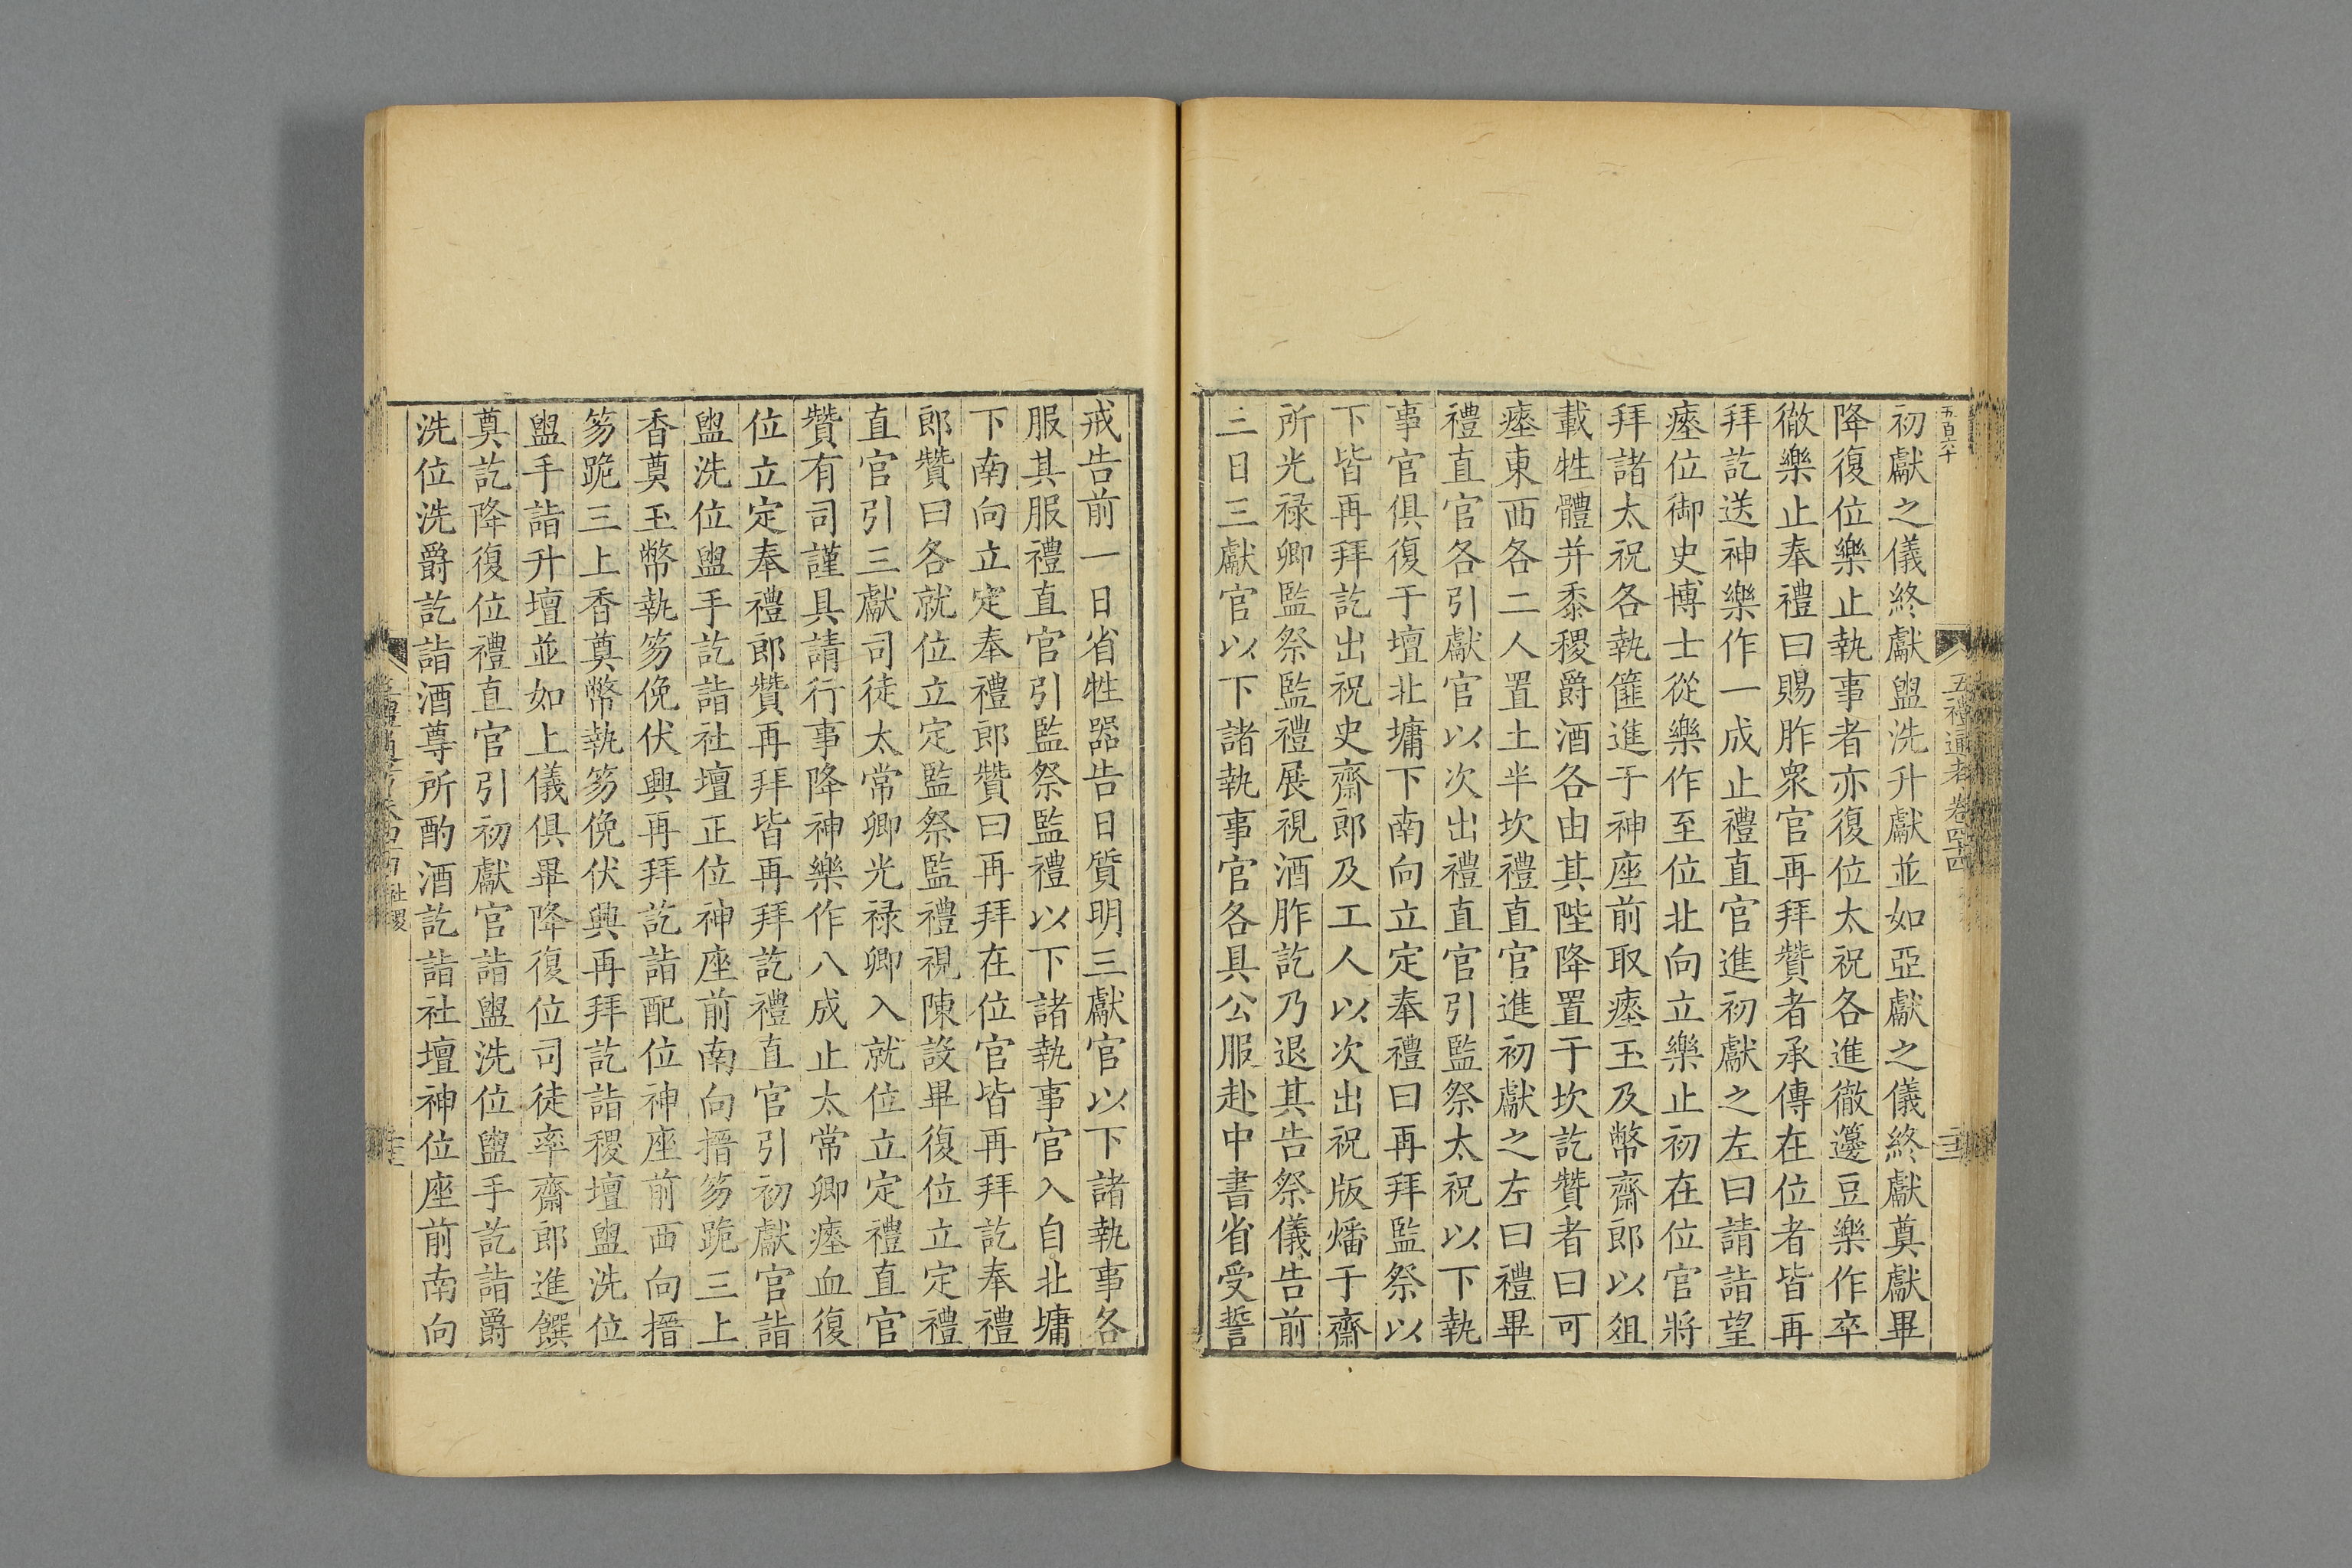 五百六十
五禮通考卷四十四
初獻之儀終獻盥洗升獻並如亞獻之儀終獻奠獻畢
降復位樂止執事者亦復位太祝各進徹籩豆樂作卒
徹樂止奉禮曰賜胙衆官再拜贊者承傳在位者皆再
拜訖送神樂作一成止禮直官進初獻之左曰請詣望
瘞位御史博士從樂作至位北向立樂止初在位官將
拜諸太祝各執篚進于神座前取瘞玉及幣齋郎以俎
載牲體并黍稷爵酒各由其陛降置于坎訖贊者曰可
瘞東西各二人置土半坎禮直官進初獻之左曰禮畢
禮直官各引獻官以次出禮直官引監祭太祝以下執
事官俱復于壇北墉下南向立定奉禮曰再拜監祭以
下皆再拜訖出祝史齋郎及工人以次出祝版燔于齋
所光祿卿監祭監禮展視酒胙訖乃退其告祭儀告前
三日三獻官以下諸執事官各具公服赴中書省受誓
戒告前一日省牲器告日質明三獻官以下諸執事各
服其服禮直官引監祭監禮以下諸執事官入自北墉
下南向立定奉禮郎贊曰再拜在位官皆再拜訖奉禮
郎贊曰各就位立定監祭監禮視陳設畢復位立定禮
直官引三獻司徒太常卿光祿卿入就位立定禮直官
贊有司謹具請行事降神樂作八成止太常卿瘞血復
位立定奉禮郎贊再拜皆再拜訖禮直官引初獻官詣
盥洗位盥手訖詣社壇正位神座前南向搢笏跪三上
香奠玉幣執笏俛伏興再拜訖詣配位神座前西向搢
笏跪三上香奠幣執笏俛伏興再拜訖詣稷壇盥洗位
盥手詣升壇並如上儀俱畢降復位司徒率齋郎進饌
奠訖降復位禮直官引初獻官詣盥洗位盥手訖詣爵
洗位洗爵訖詣酒尊所酌酒訖詣社壇神位座前南向
社稷